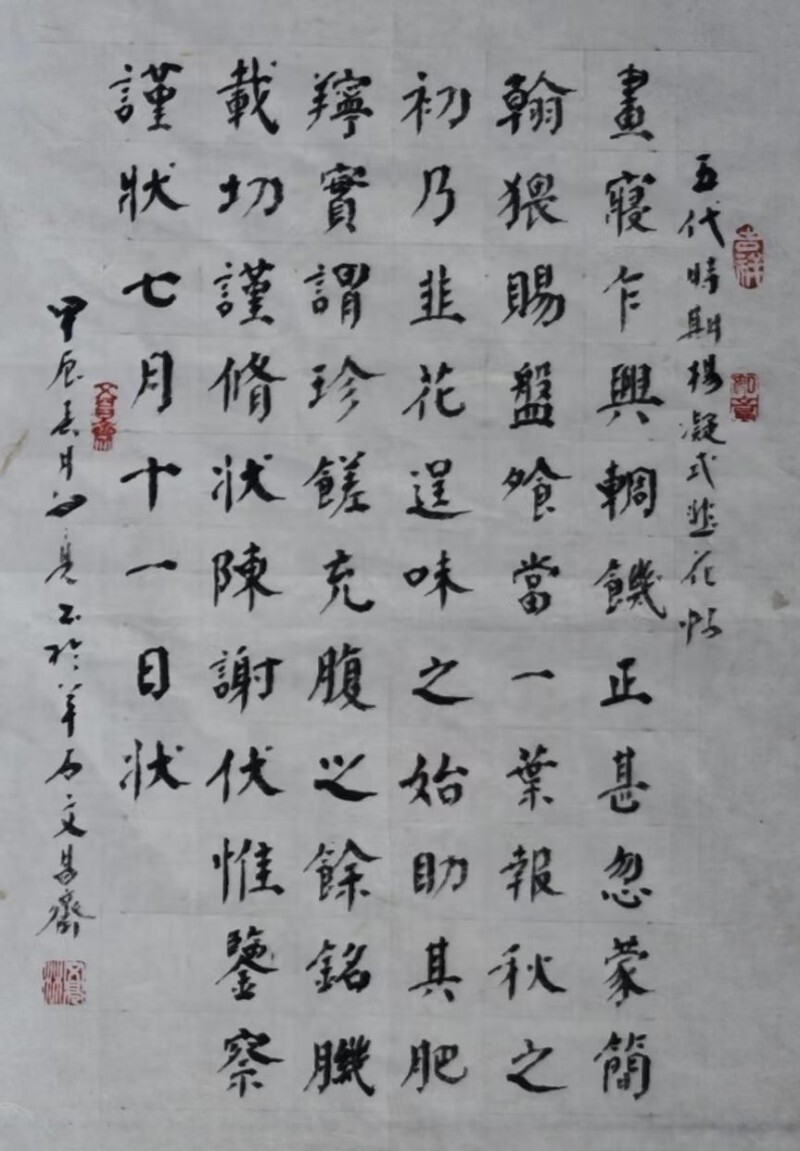 五代時期楊凝式韭花帖
晝寢乍興輖饑正甚忽蒙簡
翰猥賜盤飧當一葉報秋之
初乃韭花逞味之始助其肥
羜實謂珍饈充腹之餘銘肌
載切謹脩狀陳謝伏惟鑒察
謹狀七月十一日狀
甲辰春月亮书於羊石文昌齋
吉祥